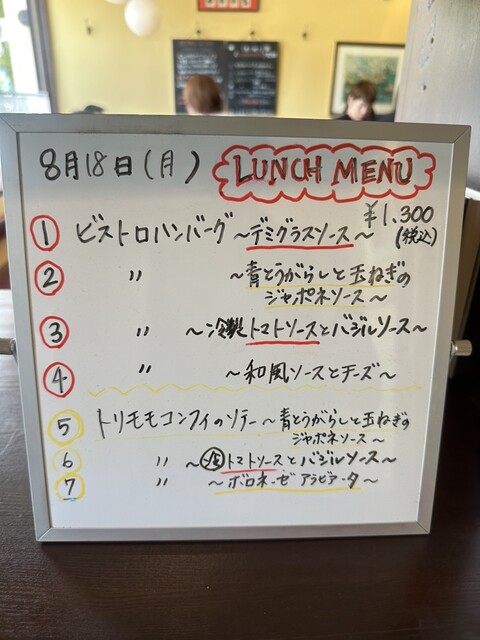 8月18日(月) LUNCH MENU
¥1,300
(税込)
① ビストロハンバーグ ~デミグラスソース~
② 〃 ~青とうがらしと玉ねぎの
ジャポネソース~
③ 〃 ~冷製トマトソースとバジルソース~
④ 〃 ~和風ソースとチーズ~
⑤ トリモモコンフィのソテー ~青とうがらしと玉ねぎの
ジャポネソース~
⑥ 〃 ~冷トマトソースとバジルソース~
⑦ 〃 ~ボロネーゼ アラビアータ~